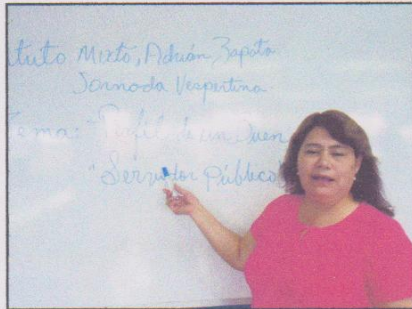 tuto Mixto, Adrián Zapata
Jornada Vespertina
Tema: "Perfil de un Buen
"Servidor Público"